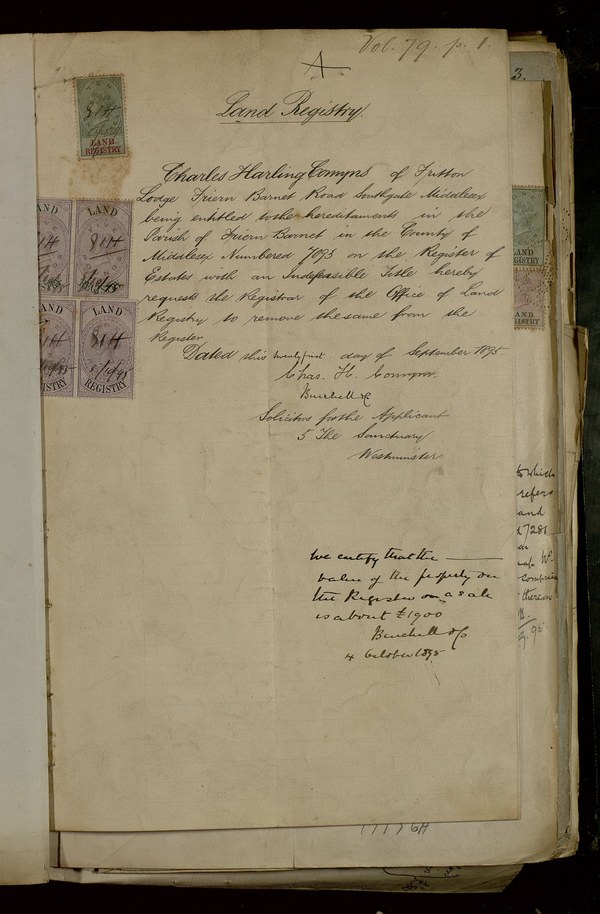 Vol. 79. p. 1
A
3.
Land Registry.
LAND
REGISTRY
Charles Harling Comyns of Fritton
Lodge Friern Barnet Road Southgate Middlesex
being entitled to the hereditaments in the
Parish of Friern Barnet in the County of
Middlesex Numbered 7095 on the Register of
Estates with an Indefeasible Title hereby
requests the Registrar of the Office of Land
Registry to remove the same from the
Register
Dated this twenty first day of September 1895
Chas. H. Comyns.
Burchell & Co
Solicitors for the Applicant
5 The Sanctuary
Westminster
AND
LAND
814
ISTRY
LAND
814
REGISTRY
to which
refers
and
7281
thereon
We certify that the
value of the property on
the Register on a sale
is about £1900
Burchell & Co
4 October 1895